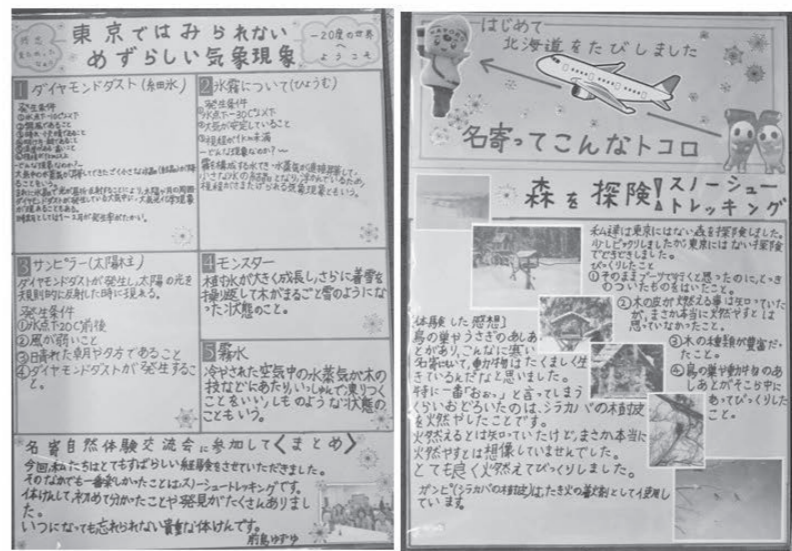 東京ではみられない
めずらしい気象現象
-20度の世界
へ
ようこそ
1 ダイヤモンドダスト(細氷)
発生条件
①氷点下-10℃以下
2 氷霧について(ひょうむ)
発生条件
①氷点下-30℃以下
②大気が安定していること
③視程が1km未満
―どんな現象なのか?―
霧を構成する水てき・水蒸気が直接昇華して、
小さな氷の結晶となり、浮かんでいるため、
視程がさまたげられる気象現象ともいう。
3 サンピラー(太陽柱)
ダイヤモンドダストが発生し、太陽の光を
規則的に反射した時に現れる。
発生条件
①氷点下20℃前後
②風が弱いこと
③晴れた朝や夕方であること
④ダイヤモンドダストが発生するこ
と。
4 モンスター
樹氷が大きく成長し、さらに着雪を
繰り返して木がまるごと雪のようになっ
た状態のこと。
5 霧氷
冷やされた空気中の水蒸気が木の
枝などにあたり、いっしゅんで凍りつく
ことをいい、しものような状態の
こともいう。
名寄自然体験交流会に参加して〈まとめ〉
今回、私たちはとてもすばらしい経験をさせていただきました。
そのなかでも一番楽しかったことはスノーシュートレッキングです。
体けんして、初めて分かったことや発見がたくさんありまし
た。
いつになっても忘れられない貴重な体けんです。
はじめて
北海道をたびしました
名寄ってこんなトコロ
森を探険!スノーシュー
トレッキング
私達は東京にはない森を探険しました。
少しビックリしましたが東京にはない探険
ができました。
びっくりしたこと
①そのままブーツで行くと思ったのに、とっき
のついたものをはいたこと。
②木の皮が燃える事は知っていた
が、まさか本当に燃やすとは
思っていなかったこと。
③木の種類が豊富だっ
たこと。
④鳥の巣や動物のあ
しあとがそこら中に
あってびっくりした
こと。
[体験した感想]
鳥の巣やうさぎのあしあ
とがあり、こんなに寒い
名寄にいて、動物はたくましく生
きているんだなと思いました。
特に一番「おぉ。」と言ってしまう
くらいおどろいたのは、シラカバの木の樹皮
を燃やしたことです。
燃えるとは知っていたけど、まさか本当に
燃やすとは想像していませんでした。
とても良く燃えてびっくりしました。
ガンピ(シラカバの樹皮)は、たき火の着火剤として使用し
ています。